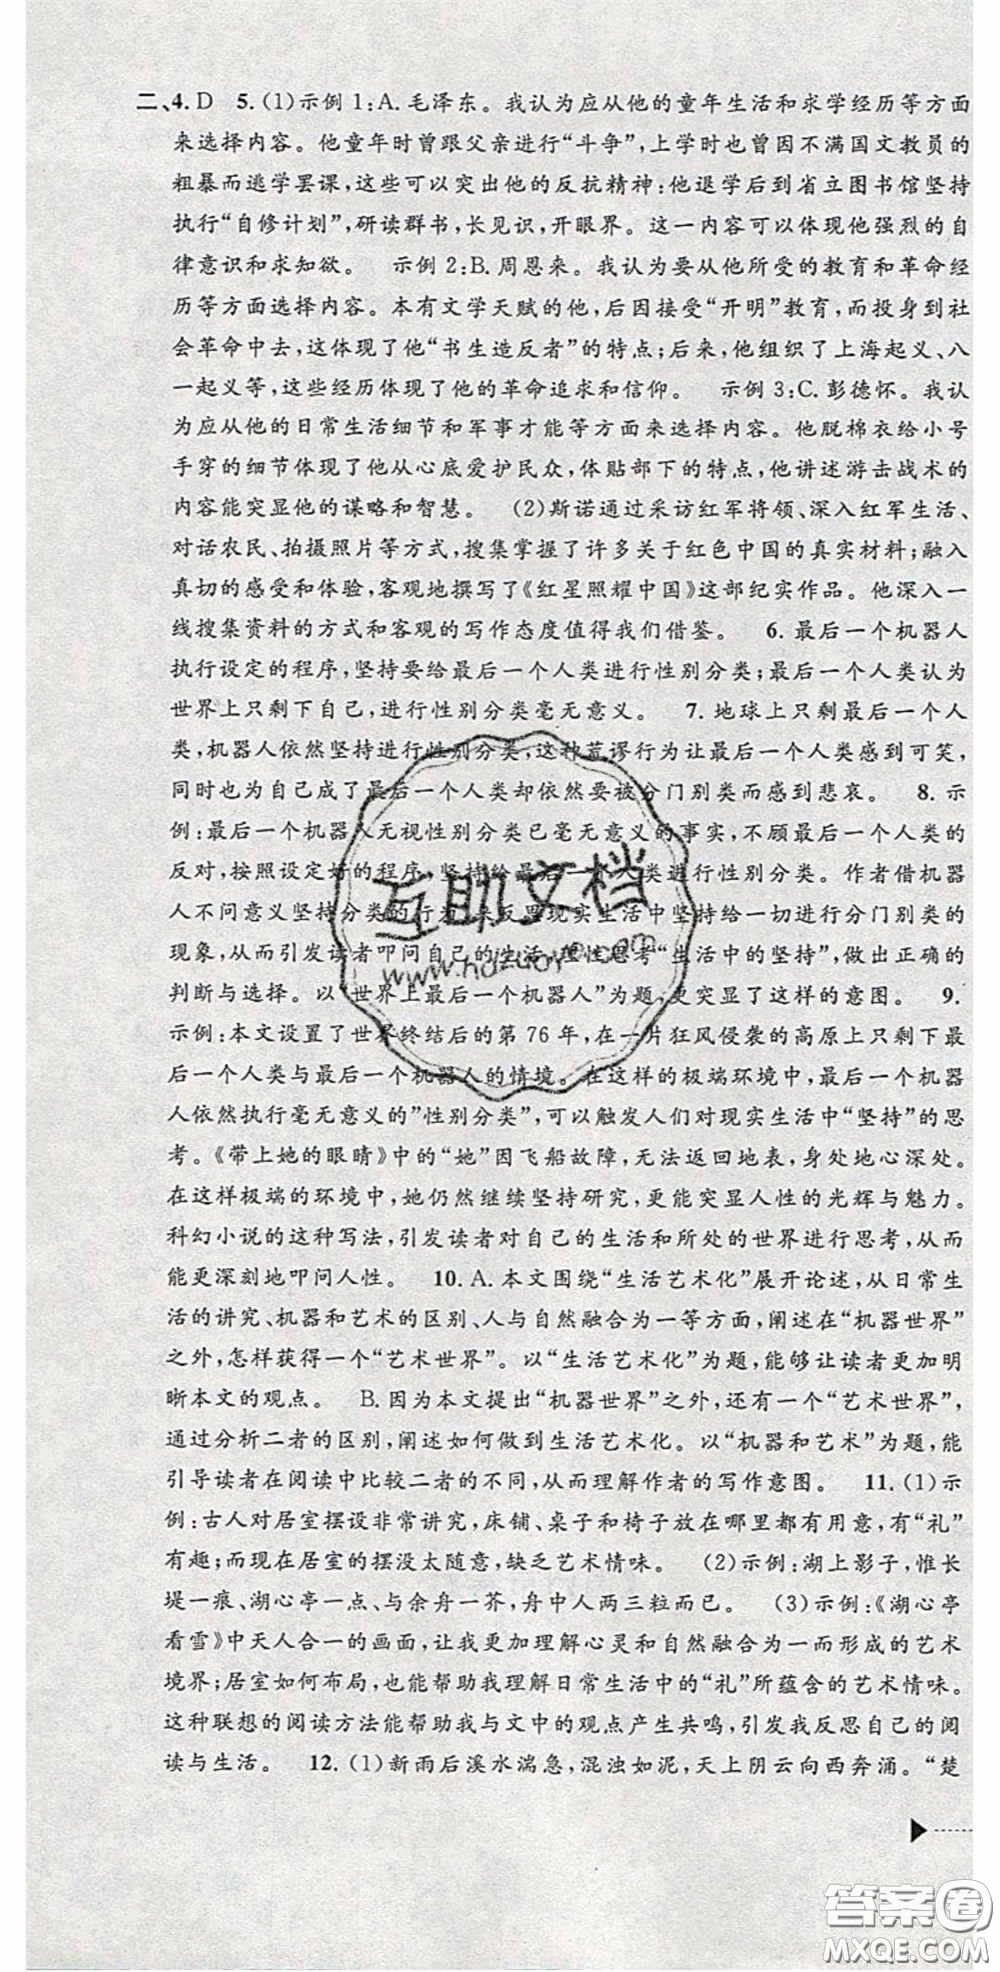 二、4. D　5. (1)示例 1:A. 毛泽东。我认为应从他的童年生活和求学经历等方面
来选择内容。他童年时曾跟父亲进行“斗争”,上学时也曾因不满国文教员的
粗暴而逃学罢课,这些可以突出他的反抗精神;他退学后到省立图书馆坚持
执行“自修计划”,研读群书,长见识,开眼界。这一内容可以体现他强烈的自
律意识和求知欲。　示例 2:B. 周恩来。我认为要从他所受的教育和革命经
历等方面选择内容。本有文学天赋的他,后因接受“开明”教育,而投身到社
会革命中去,这体现了他“书生造反者”的特点;后来,他组织了上海起义、八
一起义等,这些经历体现了他的革命追求和信仰。　示例 3:C. 彭德怀。我认
为应从他的日常生活细节和军事才能等方面来选择内容。他脱棉衣给小号
手穿的细节体现了他从心底爱护民众,体贴部下的特点,他讲述游击战术的
内容能突显他的谋略和智慧。　(2)斯诺通过采访红军将领、深入红军生活、
对话农民、拍摄照片等方式,搜集掌握了许多关于红色中国的真实材料;融入
真切的感受和体验,客观地撰写了《红星照耀中国》这部纪实作品。他深入一
线搜集资料的方式和客观的写作态度值得我们借鉴。　6. 最后一个机器人
执行设定的程序,坚持要给最后一个人类进行性别分类;最后一个人类认为
世界上只剩下自己,进行性别分类毫无意义。　7. 地球上只剩最后一个人
类,机器人依然坚持进行性别分类,这种荒谬行为让最后一个人类感到可笑,
同时也为自己成了最后一个人类却依然要被分门别类而感到悲哀。　8. 示
例:最后一个机器人无视性别分类已毫无意义的事实,不顾最后一个人类的
反对,按照设定好的程序,坚持给最后一个人类进行性别分类。作者借机器
人不问意义坚持分类的行为,来反思现实生活中坚持给一切进行分门别类的
现象,从而引发读者叩问自己的生活,理性思考“生活中的坚持”,做出正确的
判断与选择。以“世界上最后一个机器人”为题,更突显了这样的意图。　9.
示例:本文设置了世界终结后的第 76 年,在一片狂风侵袭的高原上只剩下最
后一个人类与最后一个机器人的情境。在这样的极端环境中,最后一个机器
人依然执行毫无意义的”性别分类”,可以触发人们对现实生活中“坚持”的思
考。《带上她的眼睛》中的“她”因飞船故障,无法返回地表,身处地心深处。
在这样极端的环境中,她仍然继续坚持研究,更能突显人性的光辉与魅力。
科幻小说的这种写法,引发读者对自己的生活和所处的世界进行思考,从而
能更深刻地叩问人性。　10. A. 本文围绕“生活艺术化”展开论述,从日常生
活的讲究、机器和艺术的区别、人与自然融合为一等方面,阐述在“机器世界”
之外,怎样获得一个“艺术世界”。以“生活艺术化”为题,能够让读者更加明
晰本文的观点。　B. 因为本文提出“机器世界”之外,还有一个“艺术世界”,
通过分析二者的区别,阐述如何做到生活艺术化。以“机器和艺术”为题,能
引导读者在阅读中比较二者的不同,从而理解作者的写作意图。　11. (1)示
例:古人对居室摆设非常讲究,床铺、桌子和椅子放在哪里都有用意,有“礼”
有趣;而现在居室的摆没太随意,缺乏艺术情味。　(2)示例:湖上影子,惟长
堤一痕、湖心亭一点、与余舟一芥,舟中人两三粒而已。　(3)示例:《湖心亭
看雪》中天人合一的画面,让我更加理解心灵和自然融合为一而形成的艺术
境界;居室如何布局,也能帮助我理解日常生活中的“礼”所蕴含的艺术情味。
这种联想的阅读方法能帮助我与文中的观点产生共鸣,引发我反思自己的阅
读与生活。　12. (1)新雨后溪水湍急,混浊如泥,天上阴云向西奔涌。“楚
互助文档
www.hdzuoye.com
答案圈
MXQE.COM